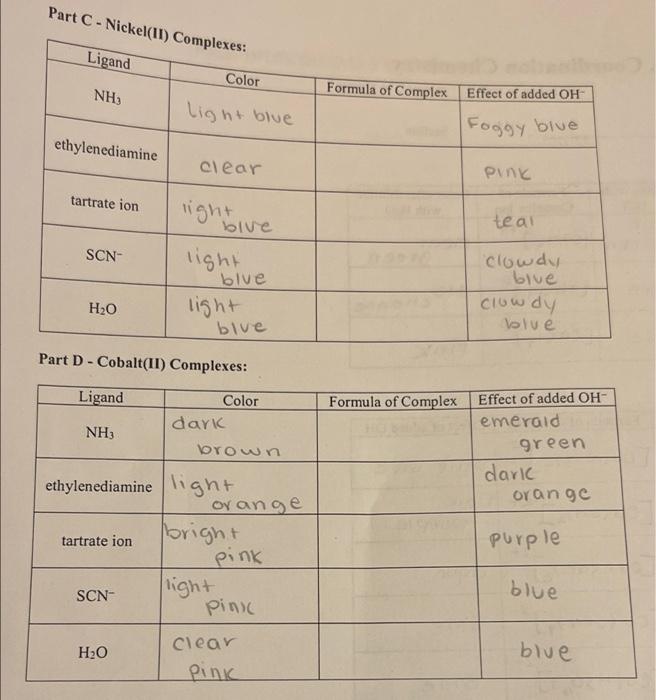 Part C - Nickel(II) Complexes:
Ligand Color Formula of Complex Effect of added OH⁻
NH₃ Light blue Foggy blue
ethylenediamine clear pink
tartrate ion light teal
blue
SCN⁻ light clowdy
blue blue
H₂O light clowdy
blue blue
Part D - Cobalt(II) Complexes:
Ligand Color Formula of Complex Effect of added OH⁻
NH₃ dark emerald
brown green
ethylenediamine light dark
orange orange
tartrate ion bright purple
pink
SCN⁻ light blue
pink
H₂O clear blue
pink